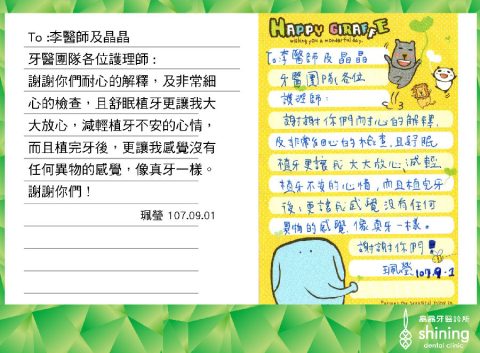 To :李醫師及晶晶
牙醫團隊各位護理師 :
謝謝你們耐心的解釋，及非常細
心的檢查，且舒眠植牙更讓我大
大放心，減輕植牙不安的心情，
而且植完牙後，更讓我感覺沒有
任何異物的感覺，像真牙一樣。
謝謝你們！
珮瑩 107.09.01
HAPPY GIRAFFE
wishing you a wonderful day.
To李醫師及晶晶
牙醫團隊各位
護理師：
謝謝你們耐心的解釋，
及非常細心的檢查，且舒眠
植牙更讓我大大放心，減輕
植牙不安的心情，而且植完牙
後，更讓我感覺沒有任何
異物的感覺，像真牙一樣。
謝謝你們！
珮瑩 107.9.1
晶晶牙醫診所
shining
dental clinic